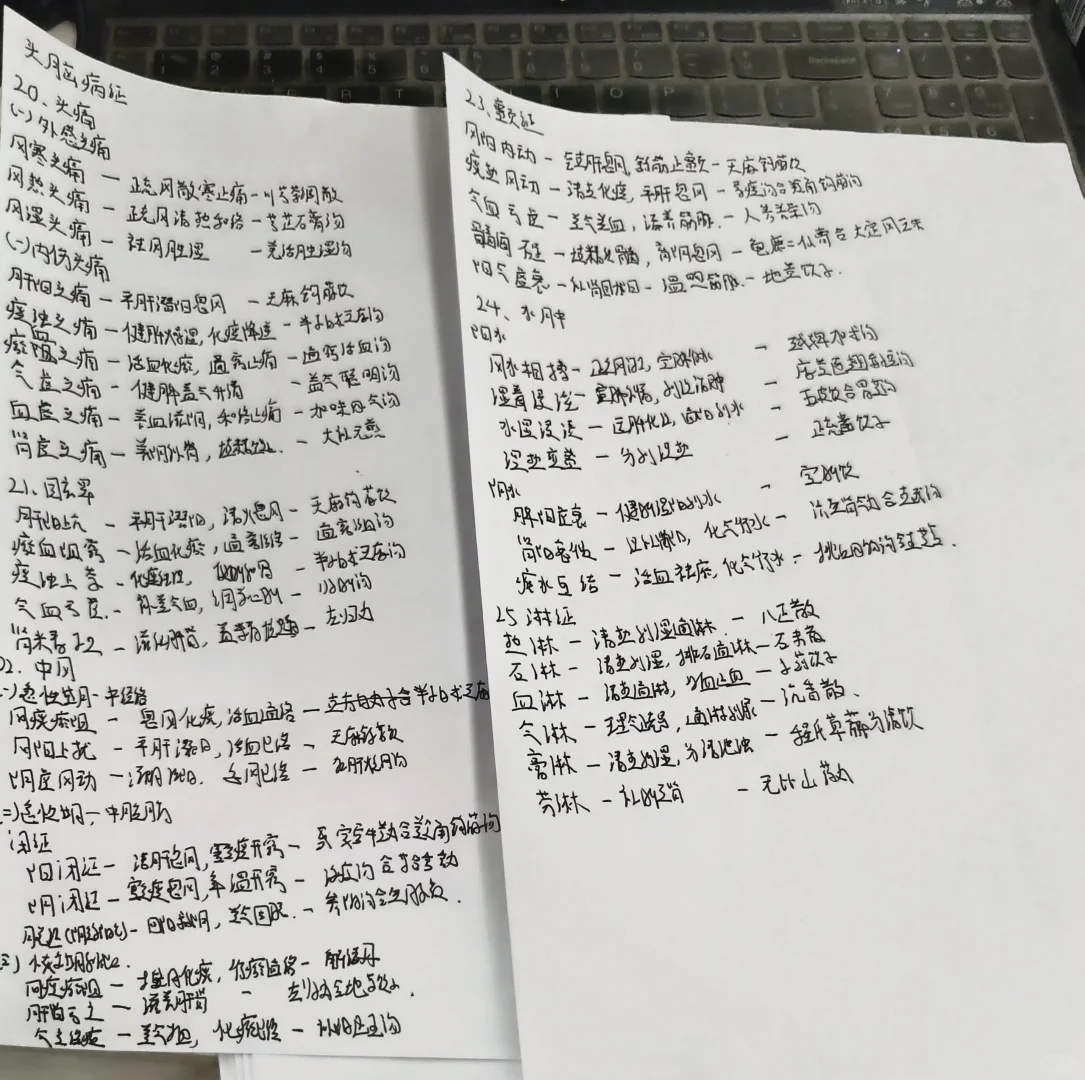 头脑病证
20、头痛
(一)外感头痛
风寒头痛 — 疏风散寒止痛 — 川芎茶调散
风热头痛 — 疏风清热和络 — 芎芷石膏汤
风湿头痛 — 祛风胜湿 — 羌活胜湿汤
(二)内伤头痛
肝阳头痛 — 平肝潜阳息风 — 天麻钩藤饮
痰浊头痛 — 健脾燥湿,化痰降逆 — 半夏白术天麻汤
瘀血头痛 — 活血化瘀,通窍止痛 — 通窍活血汤
气虚头痛 — 健脾益气升清 — 益气聪明汤
血虚头痛 — 养血滋阴,和络止痛 — 加味四物汤
肾虚头痛 — 养阴补肾,填精 — 大补元煎
21、眩晕
肝阳上亢 — 平肝潜阳,清火息风 — 天麻钩藤饮
瘀血阻窍 — 活血化瘀,通窍活络 — 通窍活血汤
痰浊上蒙 — 化痰祛湿,健脾和胃 — 半夏白术天麻汤
气血亏虚 — 补益气血,调养心脾 — 归脾汤
肾精不足 — 滋补肝肾,益精填髓 — 左归丸
22、中风
(一)急性期 — 中经络
风痰瘀阻 — 息风化痰,活血通络 —
风阳上扰 — 平肝潜阳,活血通络 — 天麻钩藤饮
阴虚风动 — 滋阴潜阳,息风通络 — 镇肝熄风汤
(二)急性期 — 中脏腑
闭证
阳闭证 — 清肝息风,豁痰开窍 —
阴闭证 — 豁痰息风,辛温开窍 — 涤痰汤合苏合香丸
脱证(阴竭阳亡) — 回阳救阴,益气固脱 — 参附汤合生脉散
(三)恢复期
风痰瘀阻 — 搜风化痰,行瘀通络 — 解语丹
肝肾亏虚 — 滋养肝肾 — 左归丸合地黄饮子
气虚络瘀 — 益气养血,化瘀通络 — 补阳还五汤
23、颤证
风阳内动 — 镇肝息风,舒筋止颤 — 天麻钩藤饮
痰热风动 — 清热化痰,平肝息风 — 导痰汤合羚角钩藤汤
气血亏虚 — 益气养血,濡养筋脉 — 人参养荣汤
髓海不足 — 填精补髓,育阴息风 — 龟鹿二仙膏合大定风珠
阳气虚衰 — 补肾助阳,温煦筋脉 — 地黄饮子
24、水肿
阳水
风水相搏 — 宣肺行水 — 越婢加术汤
湿毒浸淫 — 宣肺解毒,利湿消肿 — 麻黄连翘赤小豆汤
水湿浸渍 — 运脾化湿,通阳利水 — 五皮饮合胃苓汤
湿热壅盛 — 分利湿热 — 疏凿饮子
阴水
脾阳虚衰 — 健脾温阳利水 — 实脾饮
肾阳衰微 — 温肾助阳,化气行水 — 济生肾气丸合真武汤
瘀水互结 — 活血祛瘀,化气行水 — 桃红四物汤合五苓散
25 淋证
热淋 — 清热利湿通淋 — 八正散
石淋 — 清热利湿,排石通淋 — 石韦散
血淋 — 清热通淋,凉血止血 — 小蓟饮子
气淋 — 理气疏导,通淋利尿 — 沉香散
膏淋 — 清热利湿,分清泄浊 — 程氏萆薢分清饮
劳淋 — 补脾益肾 — 无比山药丸